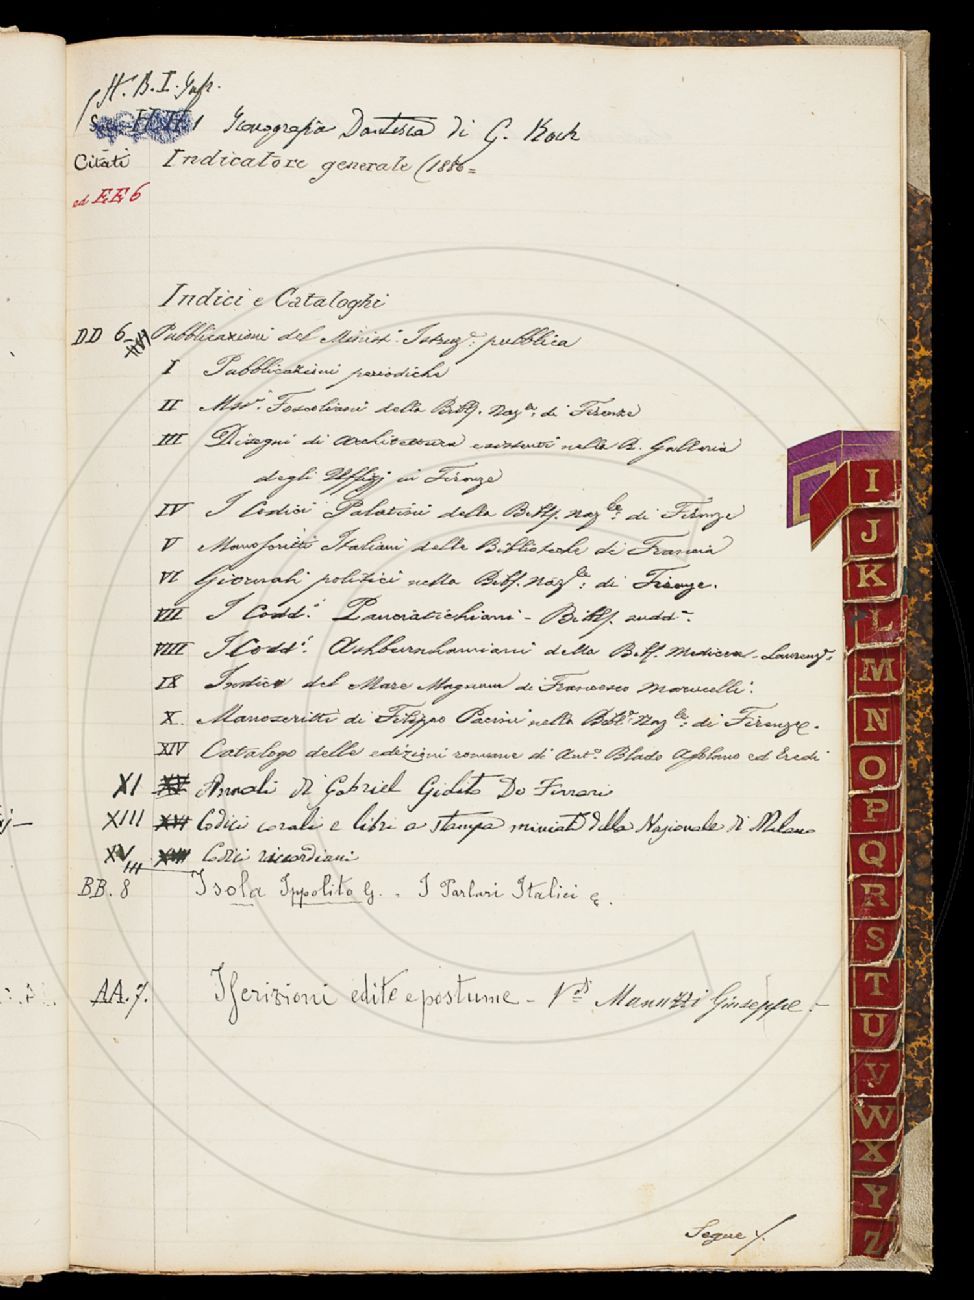 H. B. I. Gafr.
Iconografia Dantesca di G. Koch
Citati Indicatore generale (1886=
ed EE 6
Indici e Cataloghi
DD 6 Pubblicazioni del Minist. Istruz.e pubblica
I Pubblicazioni periodiche
II Mss.i Foscoliani della Bibl. Naz.le di Firenze
III Disegni di architettura esistenti nella R. Galleria
degli Uffizj in Firenze
IV I Codici Palatini della Bibl. Naz.le di Firenze
V Manoscritti Italiani delle Biblioteche di Francia
VI Giornali politici nella Bibl. Naz.le: di Firenze.
VII I Codd.i Panciatichiani - Bibl. sudd.a
VIII I Codd.i Ashburnhamiani della Bibl. Medicea-Laurenz.a
IX Indice del Mare Magnum di Francesco Marucelli.
X. Manoscritti di Filippo Pacini nella Bibl. Naz.le: di Firenze.
XIV Catalogo delle edizioni romane di Ant.o Blado Asolano ed Eredi
XI XV Annali di Gabriel Giolito De Ferrari
XIII XVI Codici corali e libri a stampa miniati della Nazionale di Milano
XV Codici ricordiani
BB. 8 Isola Ippolito G. - I Parlari Italici
AA. 7. Iscrizioni edite e postume - V.di Manuzzi Giuseppe. -
Segue
I
J
K
L
M
N
O
P
Q
R
S
T
U
V
W
X
Y
Z